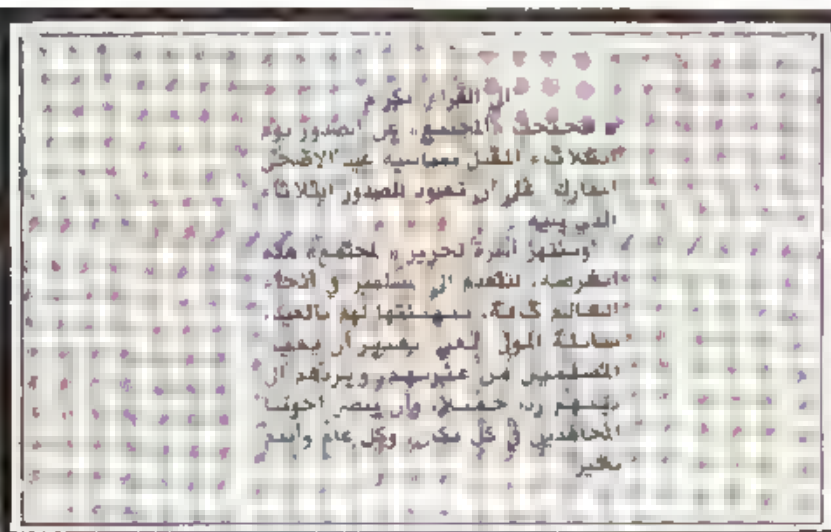 الى القراء الكرام
تحتجب «المجتمع» عن الصدور يوم
الثلاثاء المقبل بمناسبة عيد الاضحى
المبارك على أن تعود للصدور الثلاثاء
الذي يليه
وتنتهز أسرة تحرير «المجتمع» هذه
الفرصة، لتتقدم الى المسلمين في أنحاء
العالم كافة، بتهنئتها لهم بالعيد،
سائلة المولى العلي القدير أن
المسلمين من عثرتهم، ويردهم الى
دينهم ردا جميلا، وأن ينصر اخوتنا
المجاهدين في كل مكان، وكل عام وأنتم
بخير